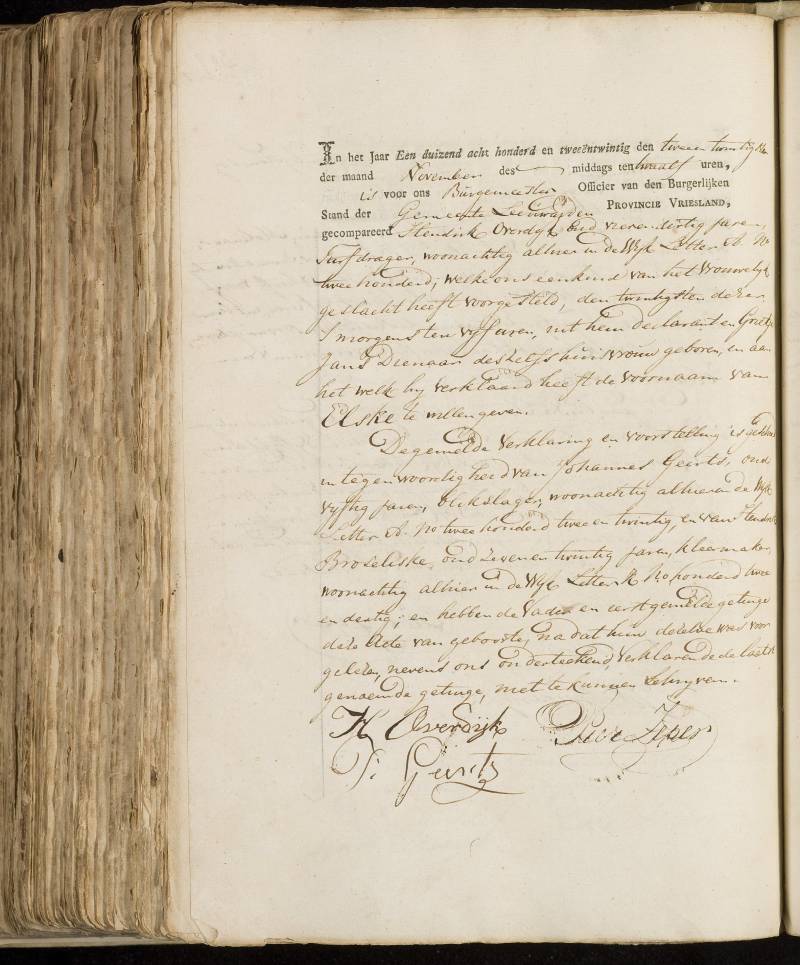 In het Jaar Een duizend acht honderd en tweeëntwintig den tweeentwintigste
der maand November des middags ten twaalf uren,
is voor ons Burgemeester Officier van den Burgerlijken
Stand der Gemeente Leeuwarden PROVINCIE VRIESLAND,
gecompareerd Hendrik Overdijk, oud vierendertig jaren,
Turfdrager, woonachtig alhier in de Wijk Letter A. No
twee honderd; welke ons een kind van het Vrouwelijk
geslacht heeft voorgesteld, den twintigsten dezer
's morgens ten vijf uren, uit hem declarant en Grietje
Jans Dienaar deszelfs huisvrouw geboren, en aan
het welk hij verklaard heeft de voornaam van
Elske te willen geven.
De gemelde verklaring en voorstelling is geschied
in tegenwoordigheid van Johannes Geerts, oud
vyftig jaren, blikslager, woonachtig alhier in de Wijk
Letter A. No twee honderd twee en twintig, en van Hendrik
Broseliske, oud zeven en twintig jaren, kleermaker,
woonachtig alhier in de Wijk Letter K No honderd twee
en dertig; en hebben de Vader en eerstgemelde getuige
deze Acte van geboorte, na dat hun dezelve was voor
gelezen, nevens ons onderteekend, verklarende de laatst
genoemde getuige, niet te kunnen schrijven.
H Overdijk
J. Geerts